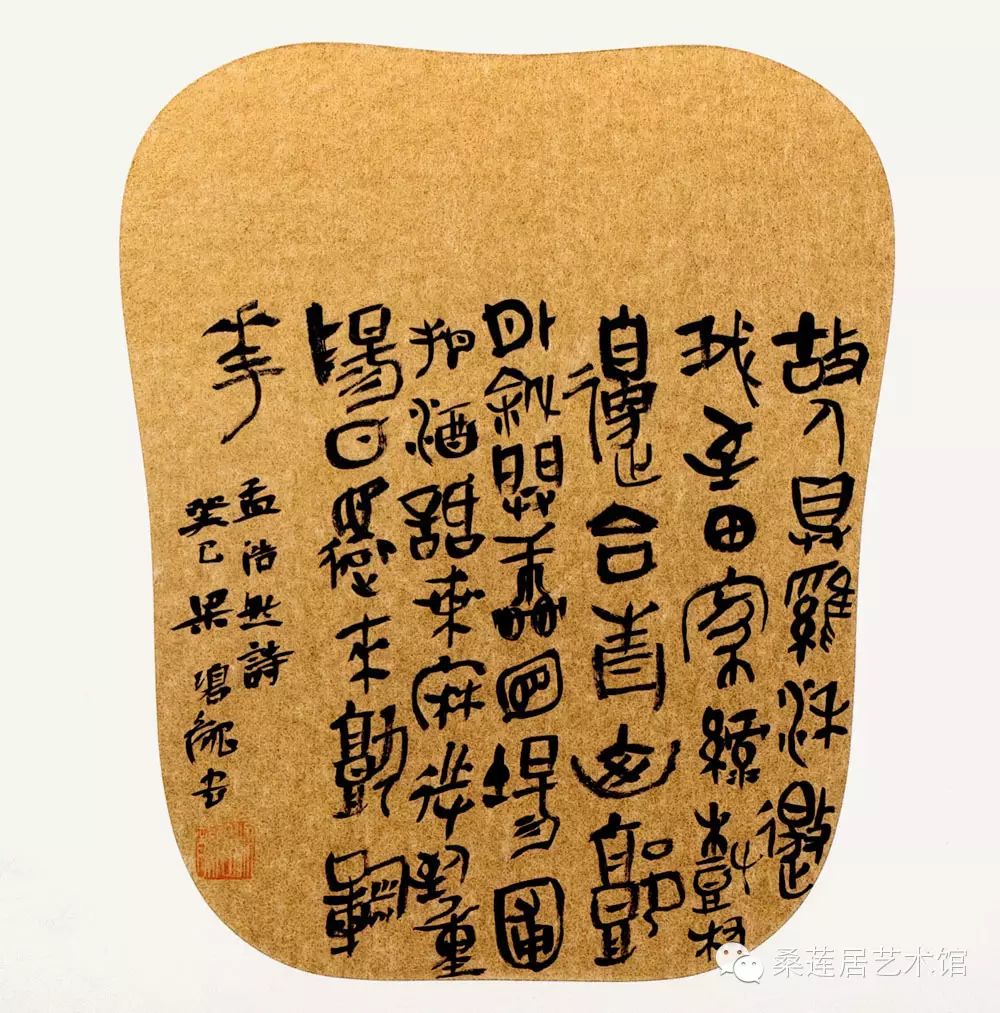 故人具雞黍邀
我至田家綠樹村
邊合青山郭
外斜開面場圃
把酒話桑麻待到重
陽日還來就菊
華
孟浩然詩
癸巳梁書
桑莲居艺术馆